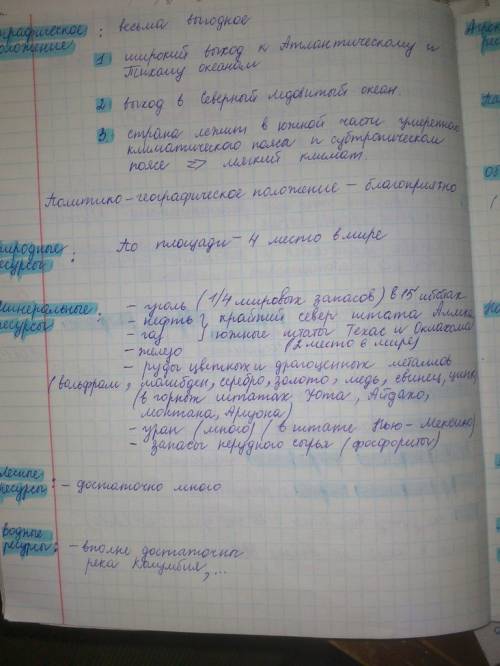 ографическое : весьма выгодное
оложение
1 широкий выход к Атлантическому и
Тихому океанам
2 выход в Северный ледовитый океан.
3. страна лежит в южной части умеренного
климатического пояса и субтропическом
поясе => мягкий климат.
Политико-географическое положение - благоприятно
иродные
есурсы : По площади - 4 место в мире
инеральные
есурсы : - уголь (1/4 мировых запасов) в 15 штатах
- нефть } крайний север штата Аляска
- газ } южные штаты Техас и Оклахома
- железо (2 место в мире)
- руды цветных и драгоценных металлов
(вольфрам, молибден, серебро, золото, медь, свинец, цинк,
(в горных штатах Юта, Айдахо,
Монтана, Аризона)
- уран (много) (в штате Нью-Мексико)
- запасы нерудного сырья (фосфориты)
лесные
есурсы : - достаточно много
водные
ресурсы : - вполне достаточны
река Колумбия, ...